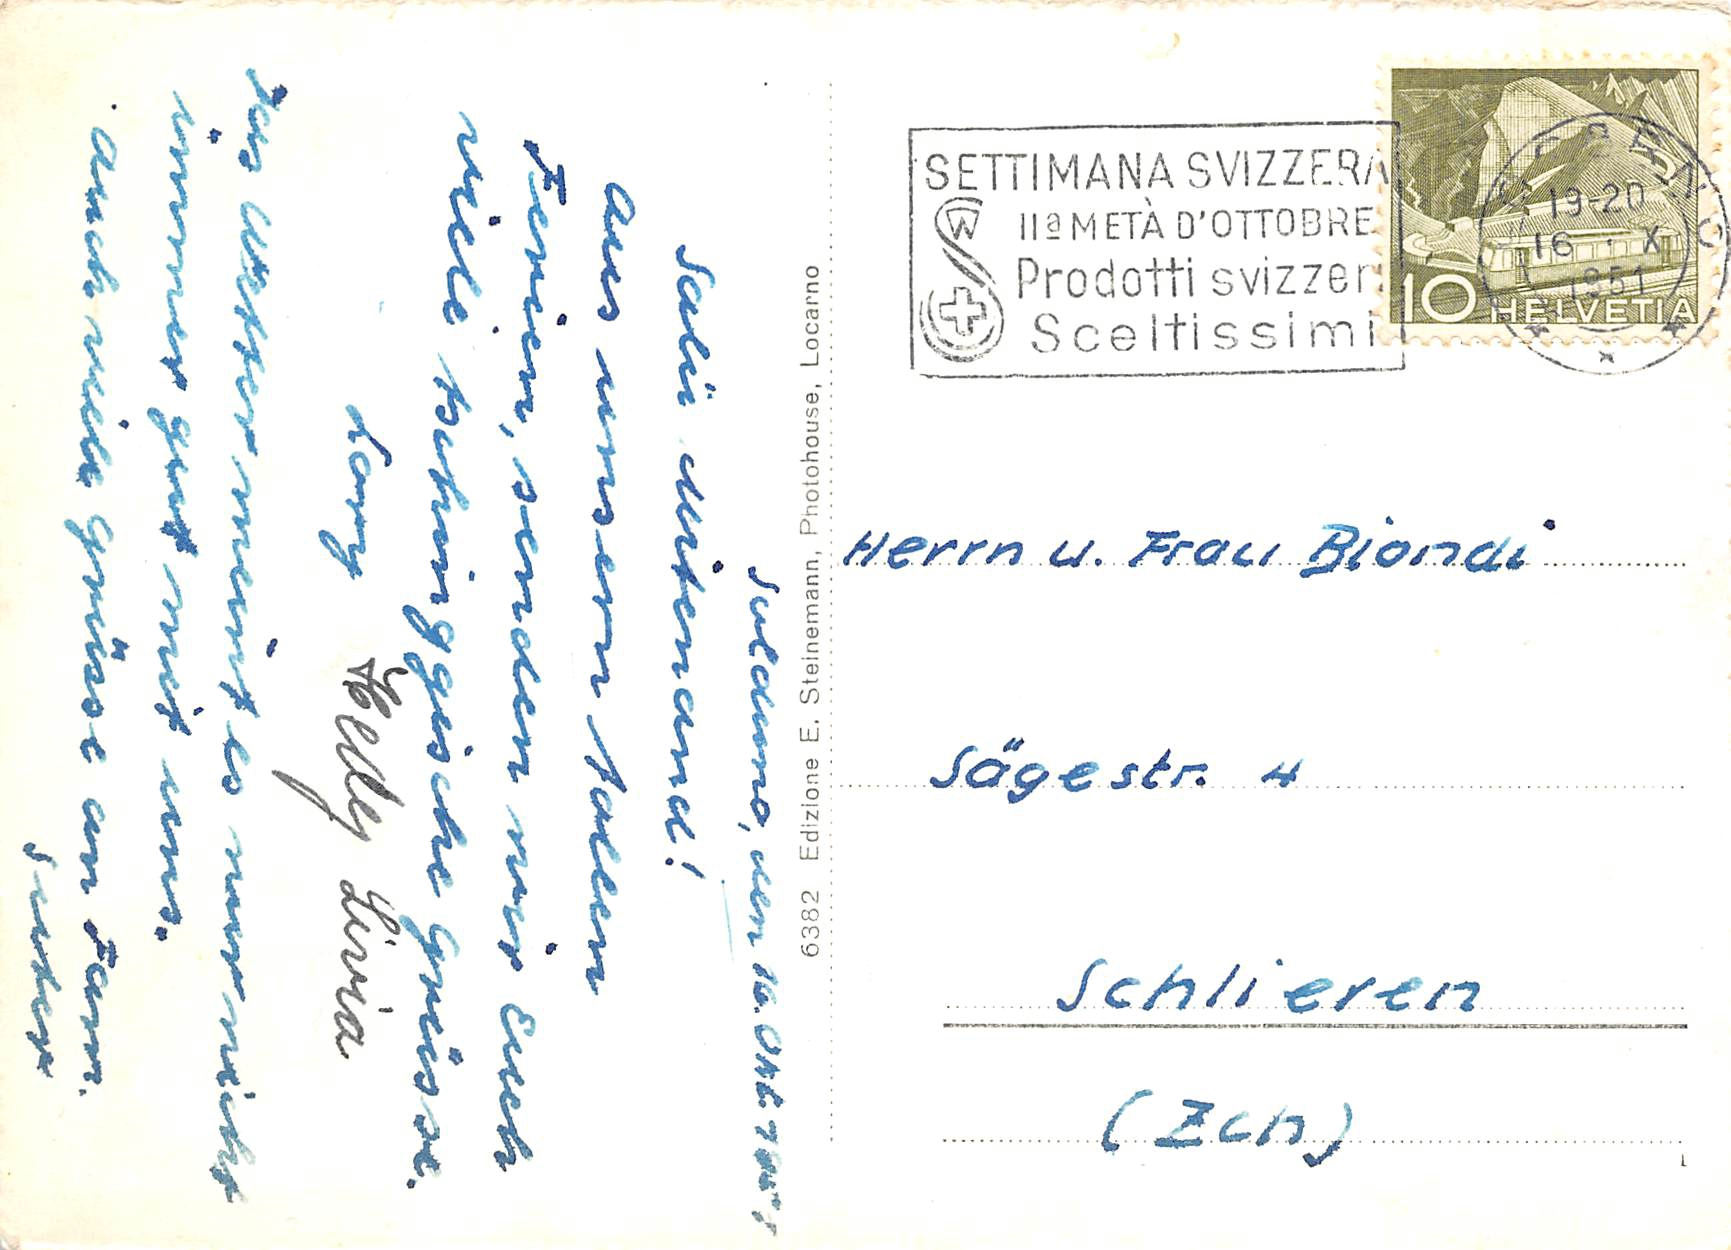 Solduno, den 16. Okt. 1951
Salü mitenand!
Aus unsern tollen
Ferien, senden wir Euch
viele tschinggische Grüsse.
Lony Helly Livia
Das Wetter meint es nur nicht
immer gut mit uns.
Auch viele Grüsse an Fam.
Suter
6382 Edizione E. Steinemann, Photohouse, Locarno
SETTIMANA SVIZZERA
IIª METÀ D'OTTOBRE
Prodotti svizzeri
Sceltissimi
19-20
16 · X
1951
10 HELVETIA
Herrn u. Frau Biondi
Sägestr. 4
Schlieren
(Zch)